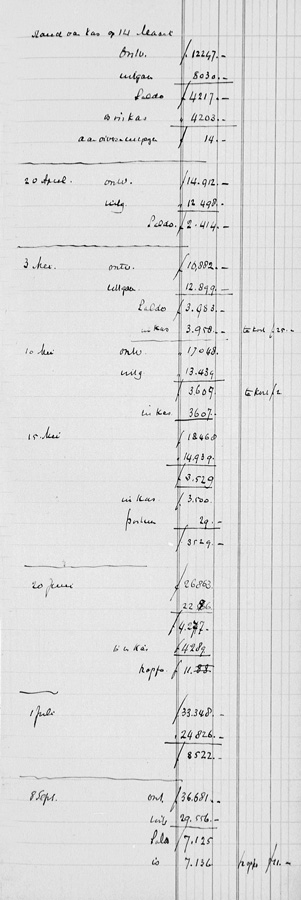 Stand van kas op 14 Maart
Ontv. ƒ 12247.-
uitgaan 8030.-
Saldo ƒ 4217.-
in kas 4203.-
aan diversen ƒ 14.-
20 April. ontv. ƒ 14.912.-
uitg. 12.498.-
Saldo. ƒ 2.414.-
3 Mei. ontv. ƒ 16,882.-
uitgaan 12.899.-
Saldo ƒ 3.983.-
in kas 3.958.- te kort ƒ 25.-
10 Mei ontv ƒ 17048.-
uitg 13.439
ƒ 3.609. te kort ƒ 2
in kas 3607.-
15 Mei ƒ 18.468
14.939.
ƒ 3.529
in kas ƒ 3.500.
29.-
ƒ 3529.-
20 Juni ƒ 26.863
ƒ 4.277.-
in kas ƒ 4289
ƒ 11.
1 Juli ƒ 33.348.-
24.826.-
ƒ 8522.-
8 Sept. ont. ƒ 36.681.-
uitg 29.556.-
Saldo ƒ 7.125
is 7.136 ƒ 11.-